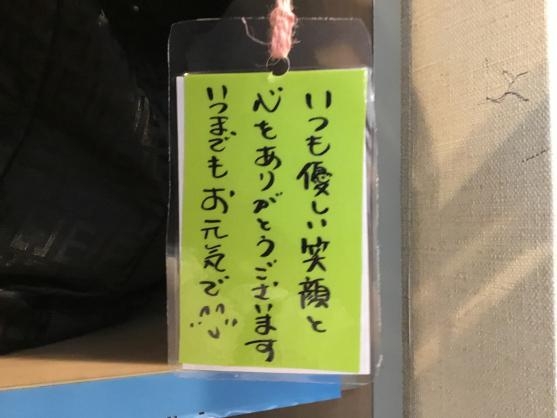 いつも優しい笑顔と
心をありがとうございます
いつまでもお元気で